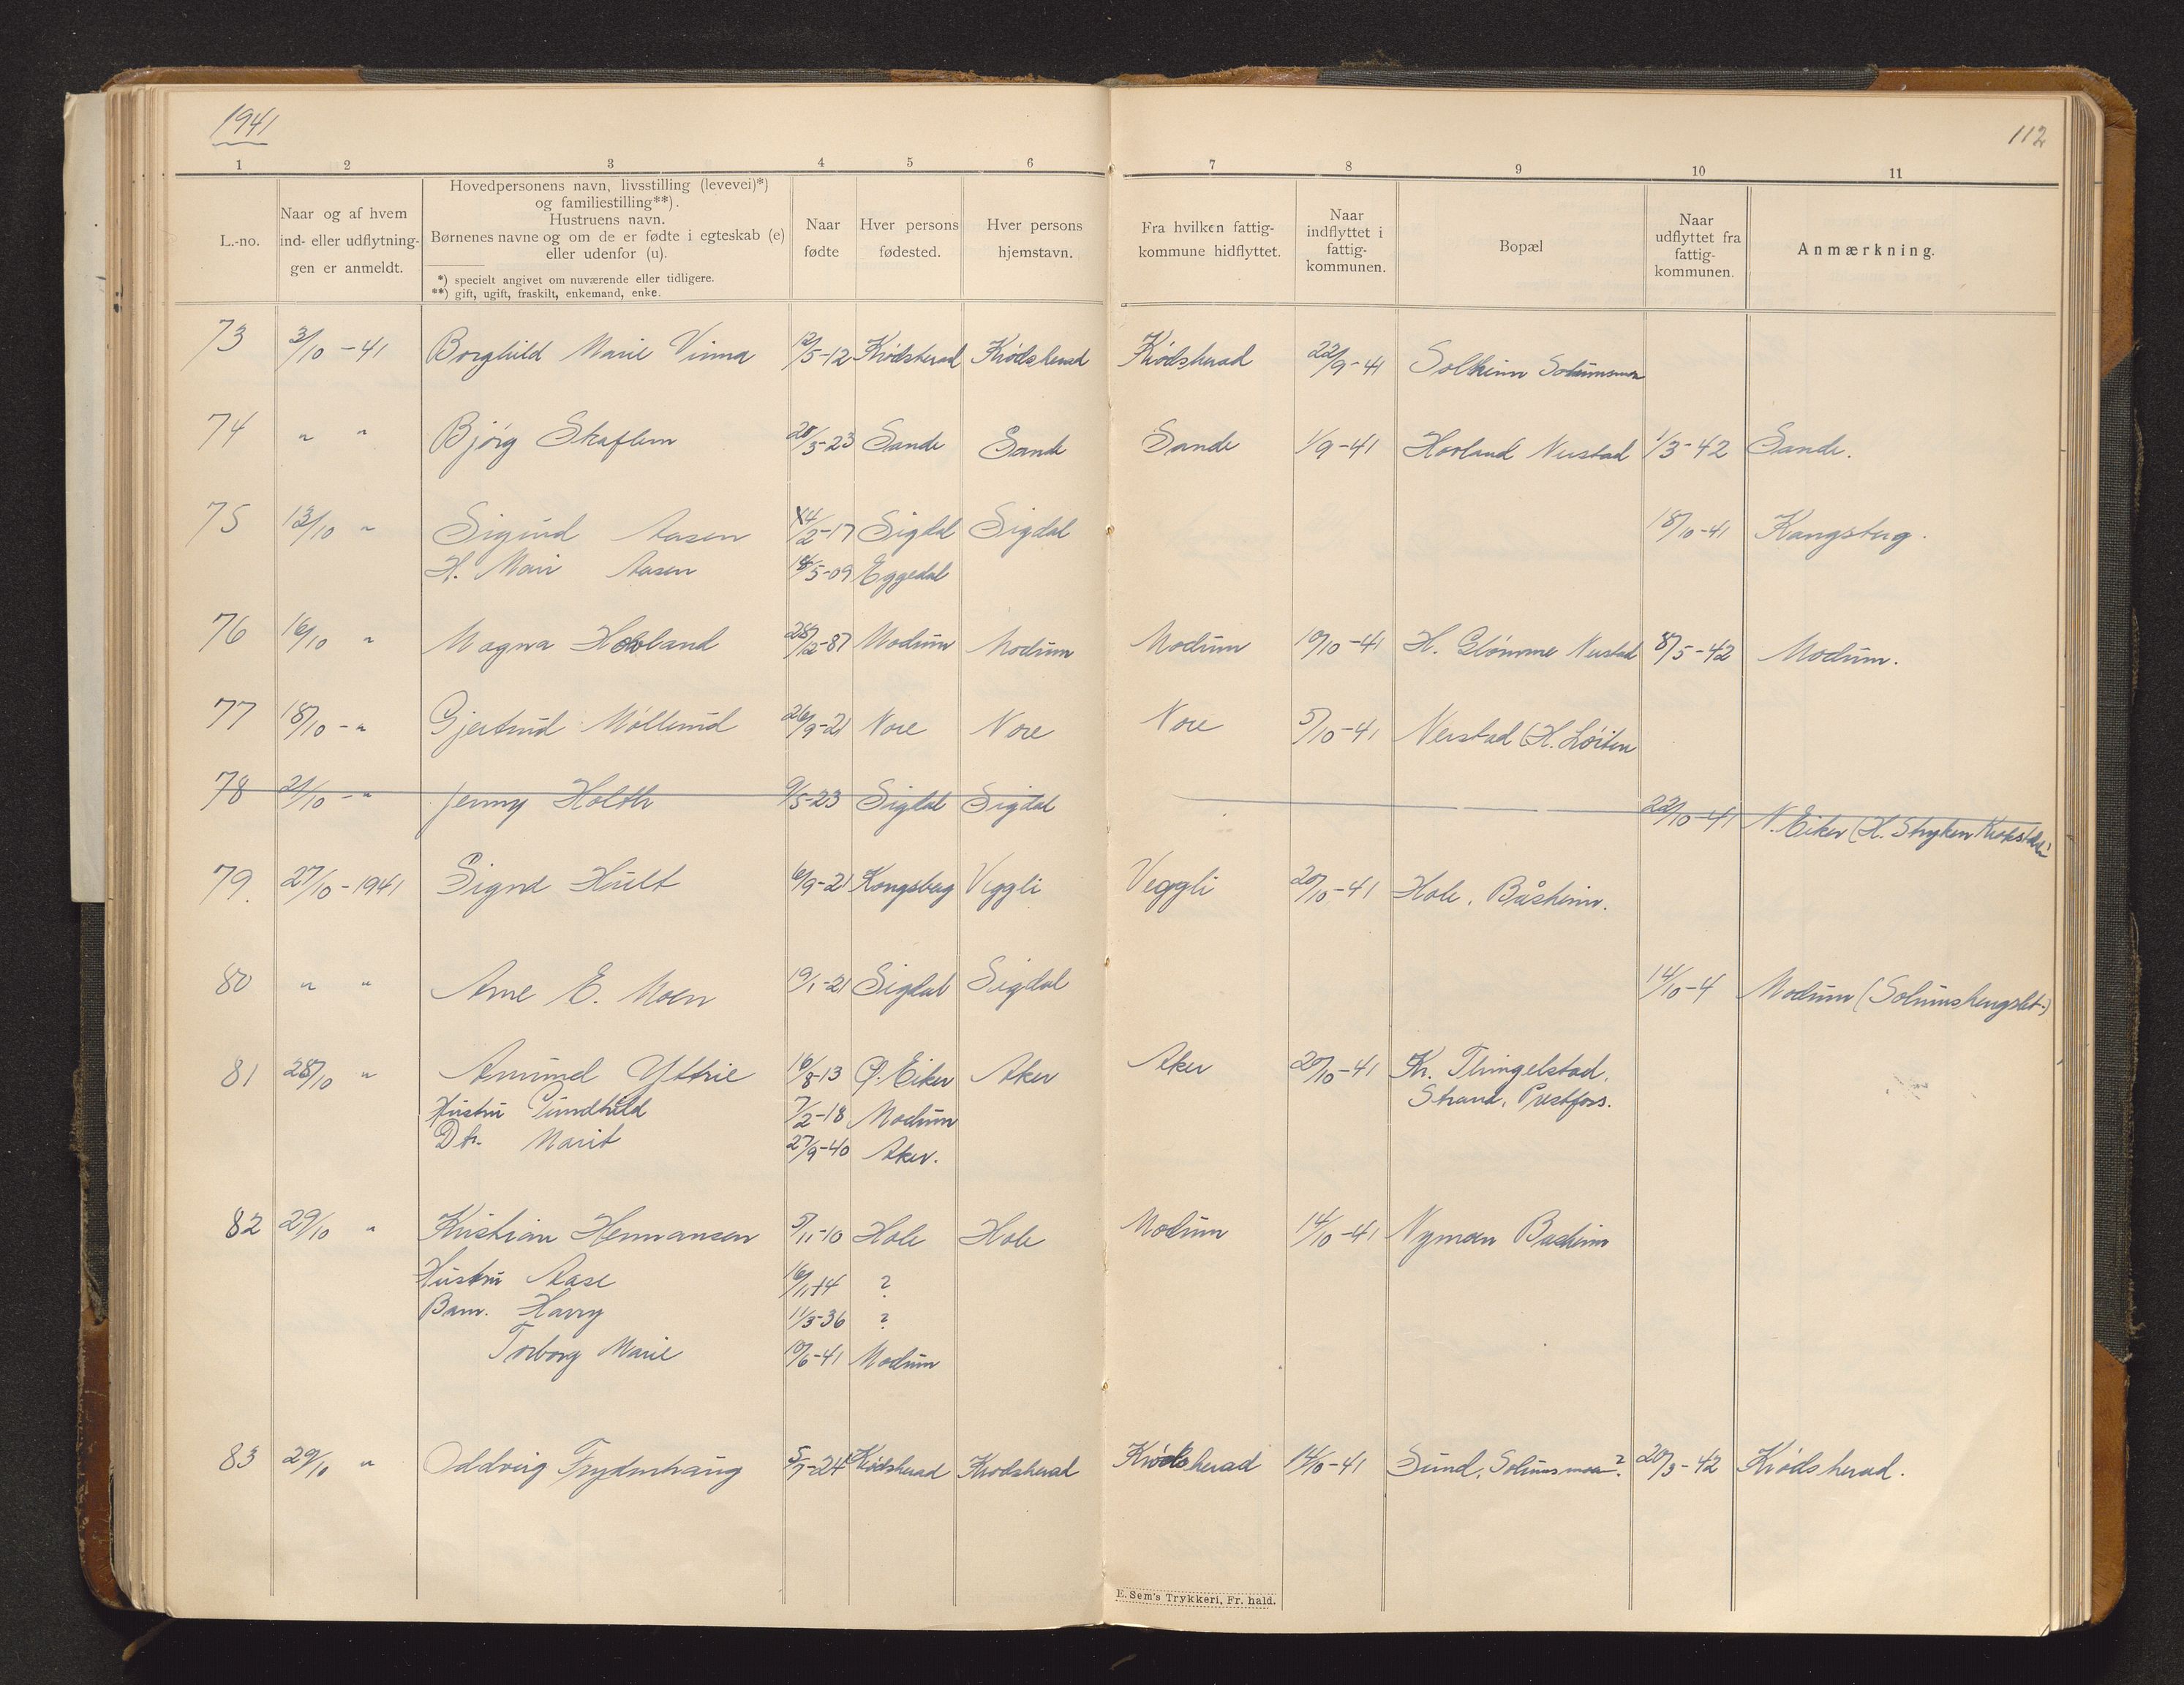 1941
112
1 2 3 4 5 6 7 8 9 10 11
L.-no.
Naar og af hvem
ind- eller udflytnin-
gen er anmeldt.
Hovedpersonens navn, livsstilling (levevei)*)
og familiestilling**).
Hustruens navn.
Børnenes navne og om de er fødte i egteskab (e)
eller udenfor (u).
*) specielt angivet om nuværende eller tidligere.
**) gift, ugift, fraskilt, enkemand, enke.
Naar
fødte
Hver persons
fødested.
Hver persons
hjemstavn.
Fra hvilken fattig-
kommune hidflyttet.
Naar
indflyttet i
fattig-
kommunen.
Bopæl
Naar
udflyttet fra
fattig-
kommunen.
Anmærkning.
73 3/10-41 Borghild Marie Vinna 12/5-12 Krødsherad Krødsherad Krødsherad 22/9-41 Solheim Solumsmoen
74 " " Bjørg Skaflem 20/3-23 Sande Sande Sande 1/9-41 Hovland Nerstad 1/3-42 Sande.
75 13/10 " Sigurd Aasen 14/2-17 Sigdal Sigdal 18/10-41 Kongsberg.
H. Mari Aasen 18/5-09 Eggedal
76 16/10 " Magna Hovland 28/12-87 Modum Modum Modum 10/10-41 H. Glømme Nerstad 8/5-42 Modum.
77 18/10-" Gjertrud Møllerud 26/9-21 Nore Nore Nore 5/10-41 Nerstad (H. Løiten
78 21/10-" Jenny Holth 9/5-23 Sigdal Sigdal 22/10-41 N. Eiker (H. Stryken Krokstad
79. 27/10-1941 Signe Hult 6/9-21 Kongsberg Veggli Veggli 20/10-41 Hole, Båsheim.
80 " " Arne E. Moen 19/1-21 Sigdal Sigdal 14/10-4 Modum (Solumshengslet.)
81 28/10 " Amund Yttrie 16/8-13 Ø. Eiker Aker Aker 20/10-41 Kr. Thingelstad,
Hustru Gundhild 7/2-18 Modum Strand, Prestfoss.
Dtr. Marit 27/9-40 Aker.
82 29/10 " Kristian Hermansen 5/11-10 Hole Hole Modum 14/10-41 Nymoen Basheim
Hustru Aase 16/1-14 ?
Barn. Harry 11/3-36 ?
Torborg Marie 10/6-41 Modum
83 29/10 " Oddveig Frydenhaug 5/7-24 Krødsherad Krødsherad Krødsherad 14/10-41 Sund, Solumsmoen? 20/3-42 Krødsherad.
E. Sem's Trykkeri, Fr. hald.